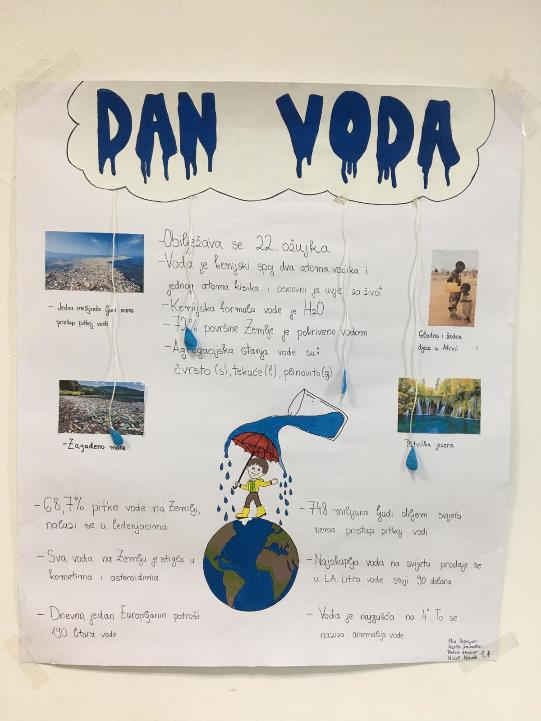 DAN VODA
-Obilježava se 22. ožujka
-Voda je kemijski spoj dva atoma vodika i
jednog atoma kisika i osnovni je uvjet za život
-Kemijska formula vode je H2O
-72% površine Zemlje je pokriveno vodom
-Agregacijska stanja vode su:
čvrsto (s), tekuće (l), plinovito (g)
- Jedna milijarda ljudi nema
pristup pitkoj vodi
Gladna i žedna
djeca u Africi
-Zagađeno more
Plitvička jezera
-68,7% pitke vode na Zemlji,
nalazi se u ledenjacima
- Sva voda na Zemlji je stigla u
kometima i asteroidima
- Dnevno, jedan Europljanin potroši
190 litara vode
- 748 milijuna ljudi diljem svijeta
nema pristup pitkoj vodi
-Najskuplja voda na svijetu prodaje se
u LA. Litra vode stoji 90 dolara
- Voda je najgušća na 4° To se
naziva anomalija vode
Mia
Petra
Nicol Novak